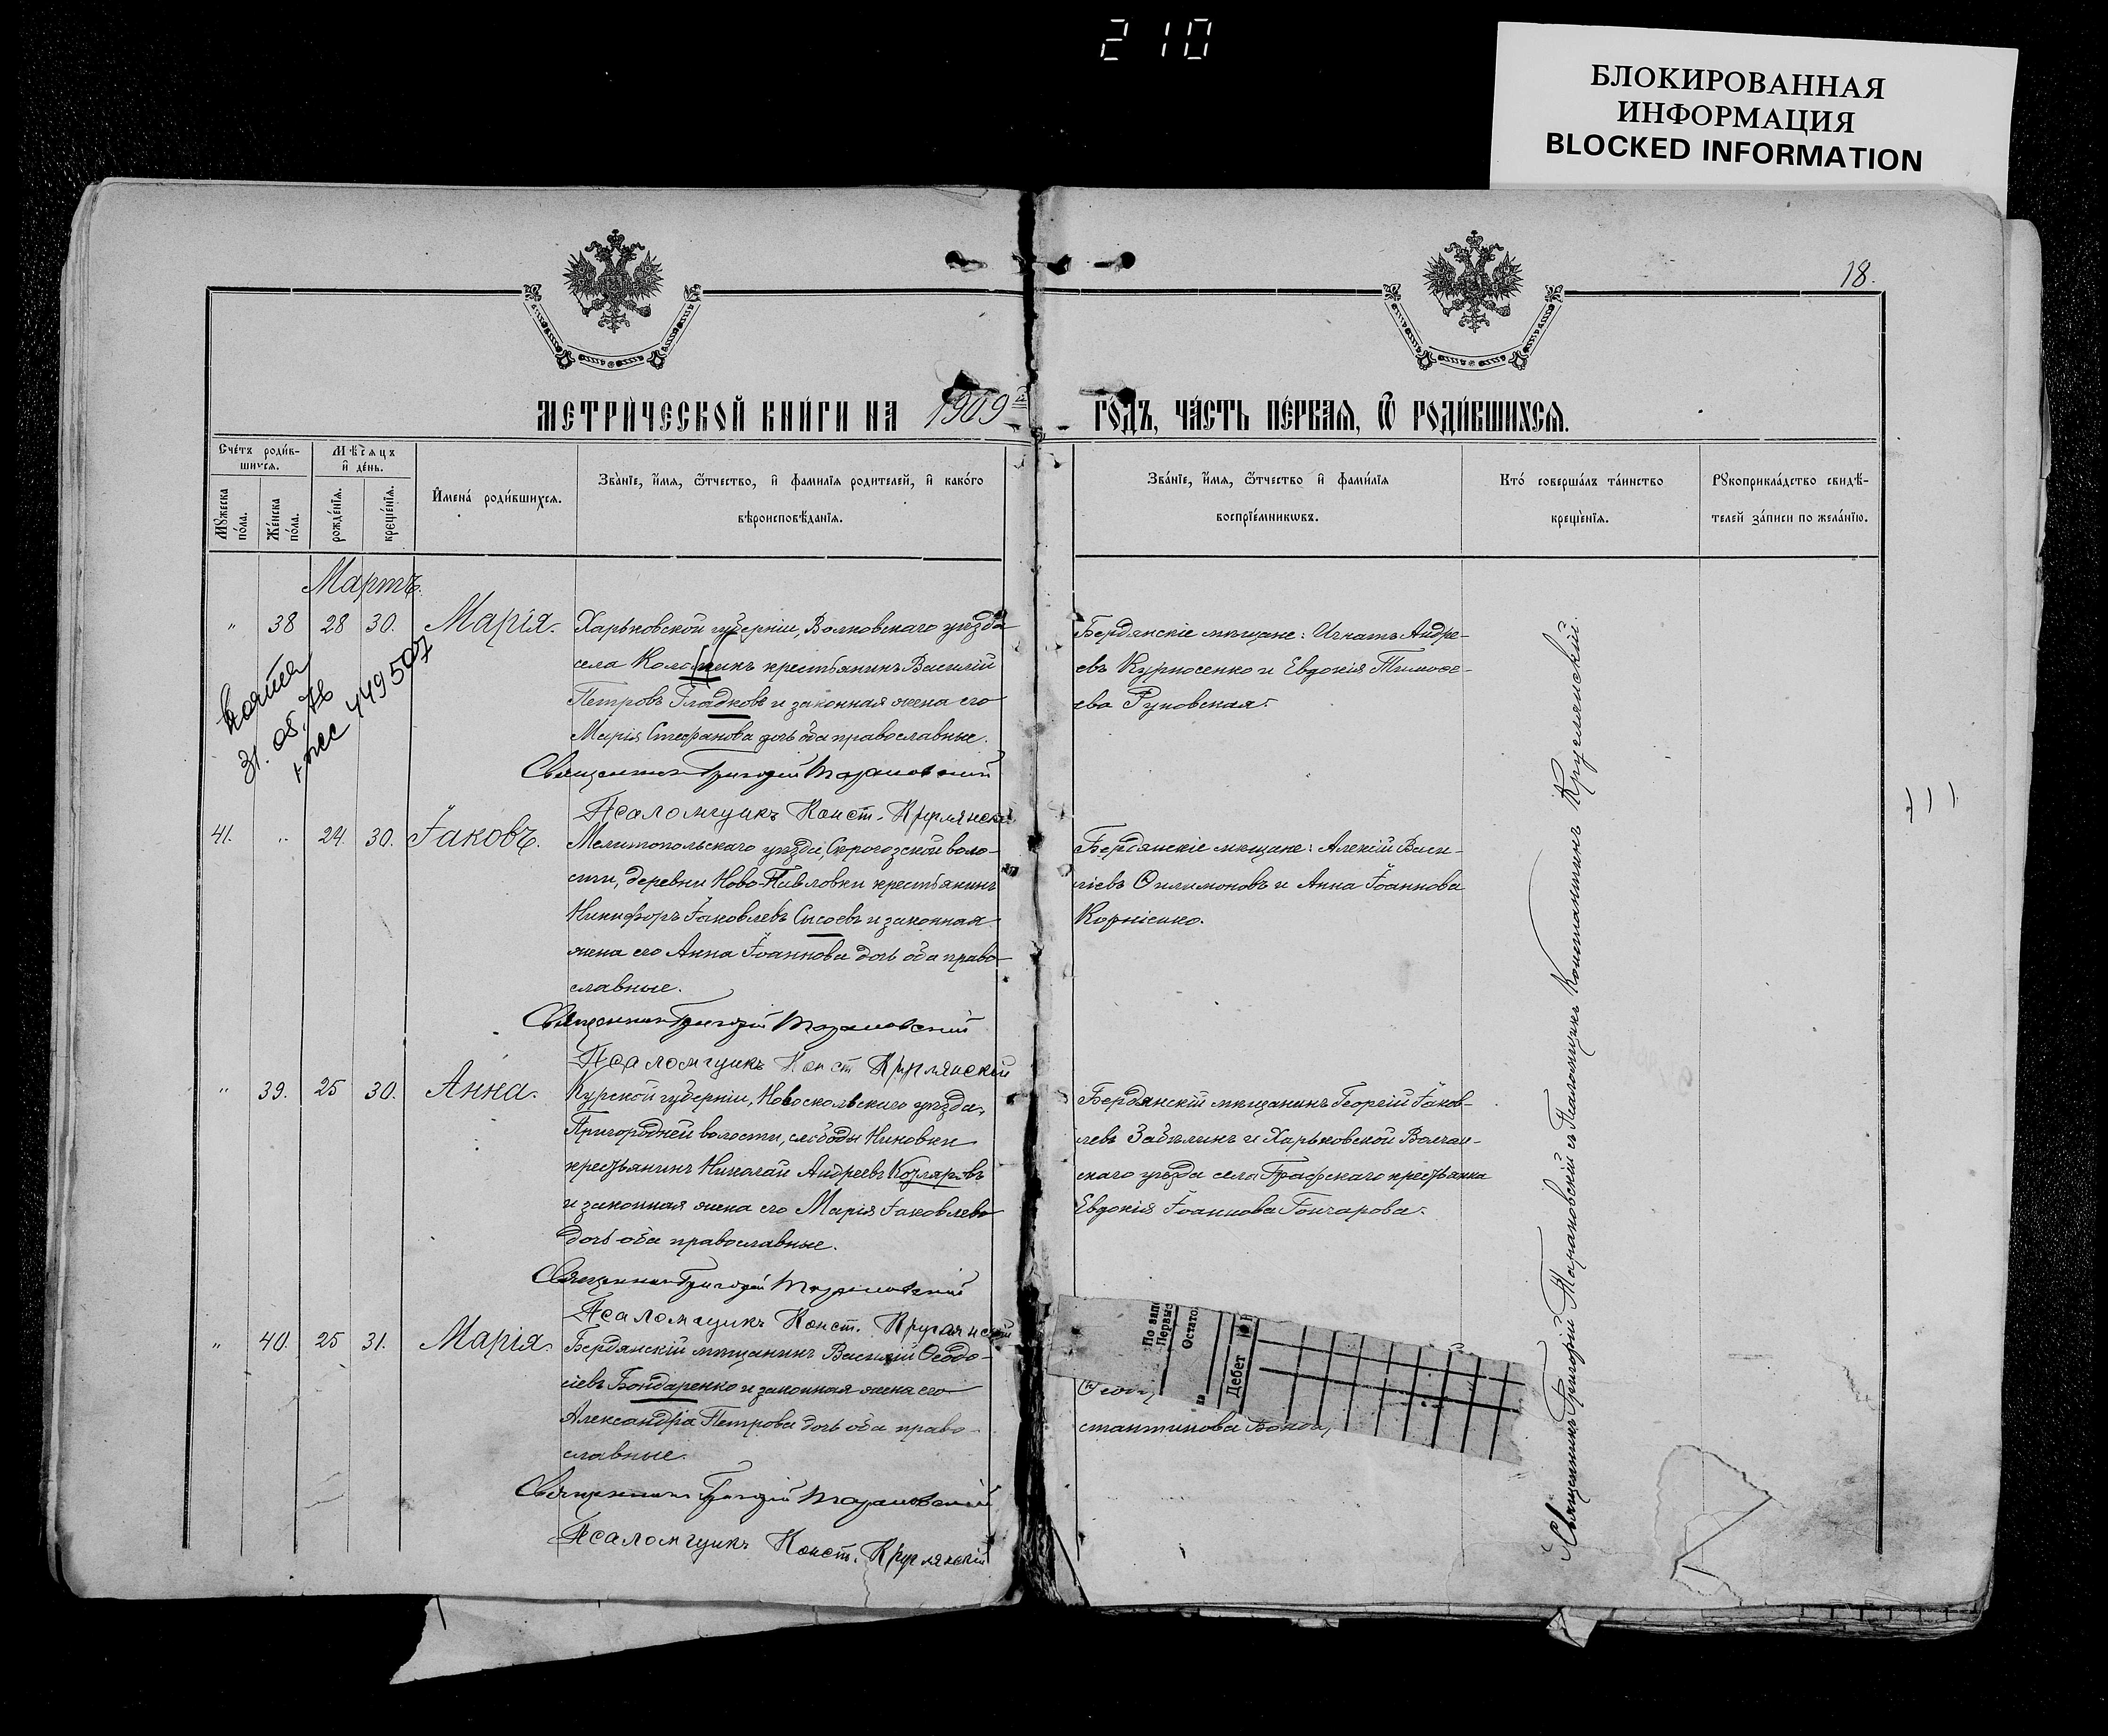 210
БЛОКИРОВАННАЯ
ИНФОРМАЦИЯ
BLOCKED INFORMATION
18.
МЕТРИ́ЧЕСКОЙ КНИ́ГИ НА 1909й
ГОДЪ, ЧА́СТЬ ПЕ́РВАЯ, Ѿ РОДИ́ВШИХСЯ.
Сче́тъ роди́в-
шихся.
Мꙋжеска по́ла.
Же́нска по́ла.
Мѣ́сяцъ
и́ де́нь.
рожде́нїя.
креще́нїя.
И҆мена̀ роди́вшихся.
Зва́нїе, и҆́мя, ѻ҆́тчество, и҆ фами́лїя роди́телей, и҆ како́го
вѣроисповѣ́данїя.
Зва́нїе, и҆́мя, ѻ҆́тчество и҆ фами́лїя
воспрїе́мникѡвъ.
Кто̀ соверша́лъ та́инство
креще́нїя.
Рꙋкоприкла́дство свидѣ́-
телей за́писи по жела́нїю.
Мартъ.
" 38 28 30. Марія.
Харьковской губерніи, Волковскаго уѣзда
села крестьянинъ Василій
Петровъ Гладковъ и законная жена его
Марія Стефанова дочь оба православные.
Священникъ Григорій Тарановскій
Псаломщикъ Конст. Круглянскій
Бердянскіе мѣщане: Игнатъ Андре-
евъ Курносенко и Евдокія Тимоѳе-
ева Руновская.
31. 05. 76
449507
41. " 24 30. Іаковъ.
Мелитопольскаго уѣзда, Серогозской воло-
сти, деревни Ново-Павловки крестьянинъ
Никифоръ Іаковлевъ Сысоевъ и законная
жена его Анна Іоаннова дочь оба право-
славные.
Священникъ Григорій Тарановскій
Псаломщикъ Конст Круглянскій
Бердянскіе мѣщане: Алексій Васи-
ліевъ Филимоновъ и Анна Іоаннова
Корніенко.
111
" 39. 25 30. Анна.
Курской губерніи, Новоскольскаго уѣзда,
Пригородней волости, слободы Ниновки
крестьянинъ Николай Андреевъ Козляровъ
и законная жена его Марія Іаковлева
дочь оба православные.
Священникъ Григорій Тарановскій
Псаломщикъ Конст. Круглянскій
Бердянскій мѣщанинъ Георгій Іаков-
левъ Забѣлинъ и Харьковской Волчан-
скаго уѣзда села Графскаго крестьянка
Евдокія Іоаннова Гончарова.
" 40. 25 31. Марія.
Бердянскій мѣщанинъ Василій Ѳеодо-
сіевъ Бондаренко и законная жена его
Александра Петрова дочь оба право-
славные.
Священникъ Григорій Тарановскій
Псаломщикъ Конст. Круглянскій
По зап
Первы
Остато
Дебет
стантинова Бонда
Священникъ Григорій Тарановскій съ Псаломщикъ Константинъ Круглянскій.